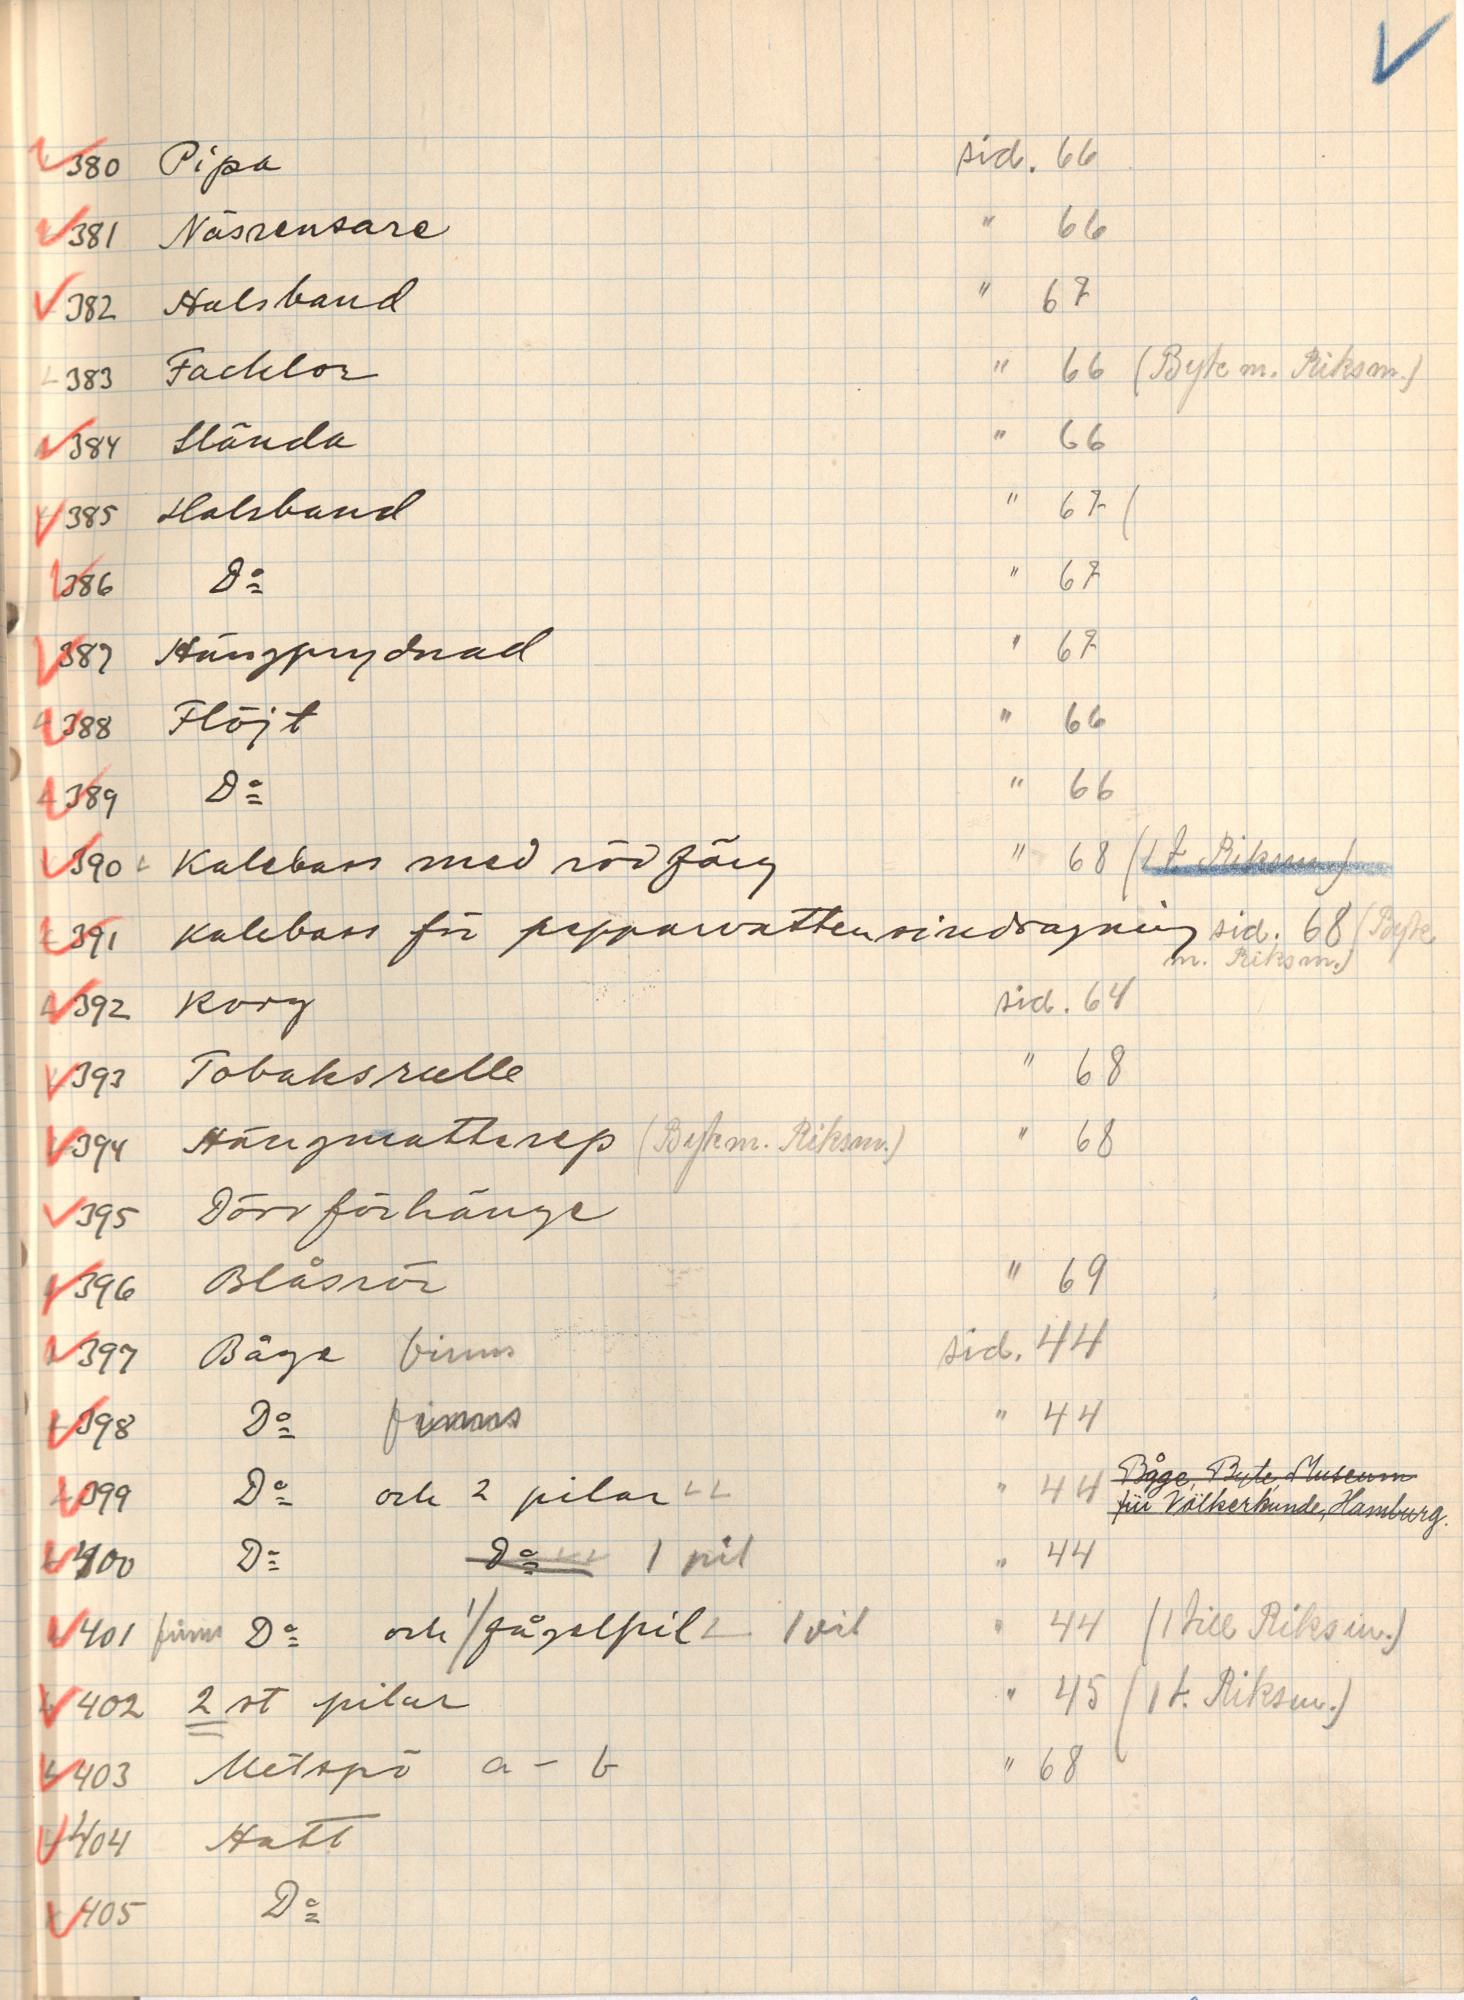 380 Pipa sid. 66
381 Näsrensare " 66
382 Halsband " 67
383 Facklor " 66 (Byte m. Riksm.)
384 Slända " 66
385 Halsband " 67 (
386 Do " 67
387 Hängprydnad " 67
388 Flöjt " 66
389 Do " 66
390 Kalebass med rödfärg " 68 (1 t. Riksm.)
391 Kalebass för pepparvattensindragning sid. 68 (Byte
m. Riksm.)
392 Korg sid. 64
393 Tobaksrulle " 68
394 Hängmatterep (Byte m. Riksm.) " 68
395 Dörrförhänge
396 Blåsrör " 69
397 Båge finns sid. 44
398 Do finns " 44
399 Do och 2 pilar " 44 Båge, Byte, Museum
für Völkerkunde, Hamburg.
400 Do Do 1 pil " 44
401 finns Do och 1/fågelpil 1 pil " 44 (1 till Riksm.)
402 2 st pilar " 45 (1 t. Riksm.)
403 Metspö a - b " 68
404 Hatt
405 Do